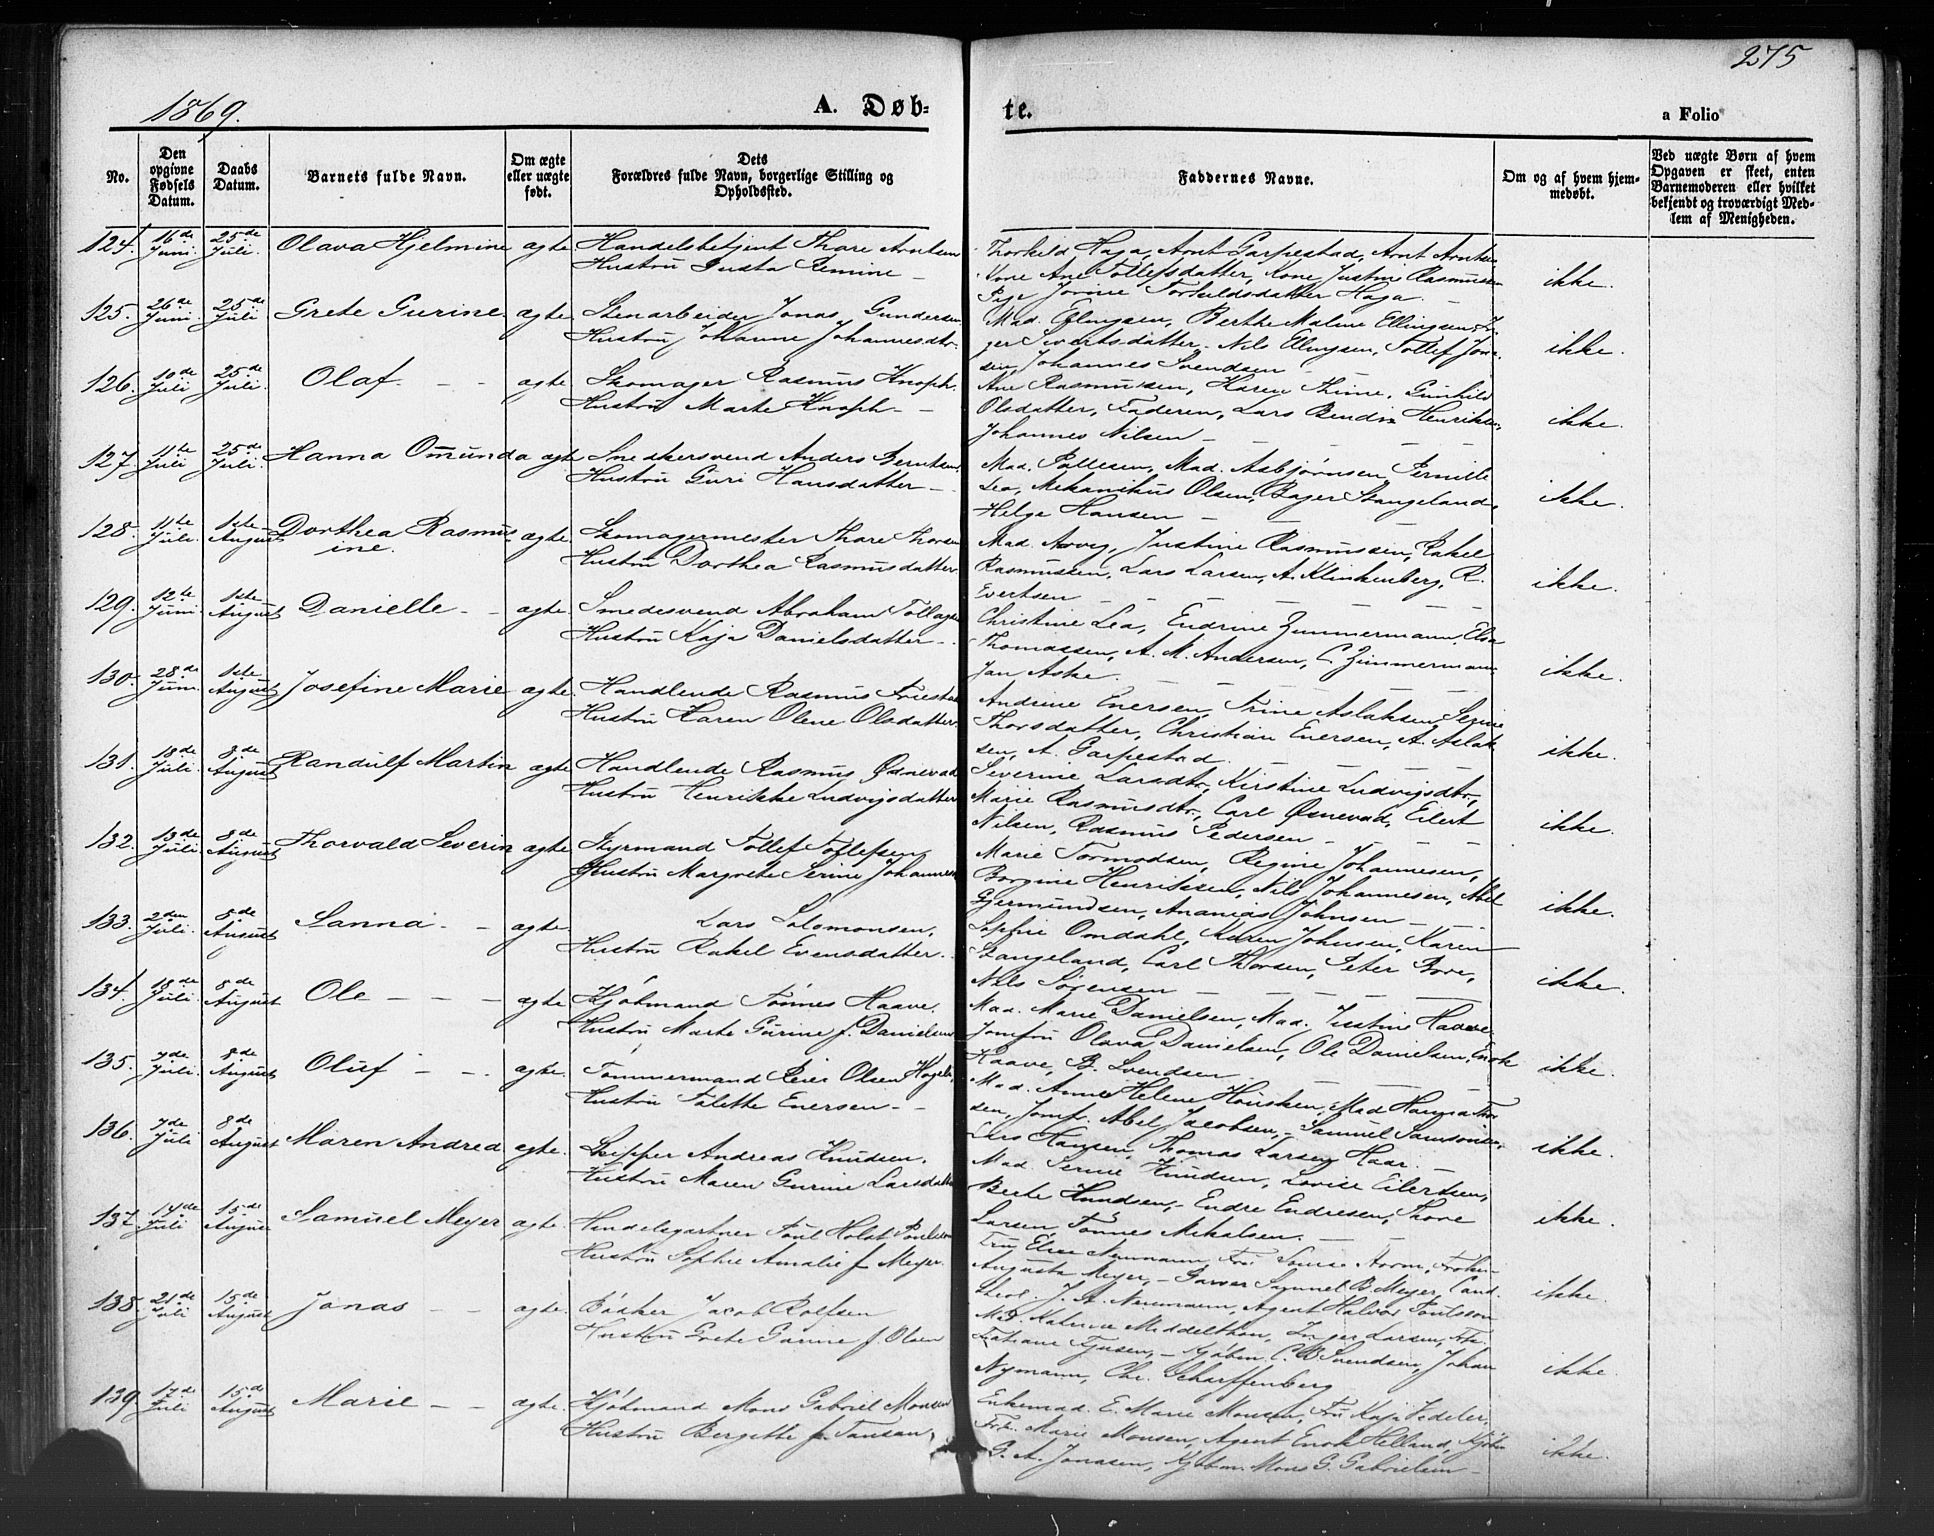 275
1869.
A. Døb-
te.
a Folio
No.
Den opgivne Fødsels Datum.
Daabs Datum.
Barnets fulde Navn.
Om ægte eller uægte født.
Dets Forældres fulde Navn, borgerlige Stilling og Opholdssted.
Faddernes Navne.
Om og af hvem hjemmedøbt.
Ved uægte Børn af hvem Opgaven er skeet, enten Barnemoderen eller hvilket bekjendt og troværdigt Medlem af Menigheden.
124. 16de Juni. 25de Juli. Olava Hjelmine ægte Handelsbetjent Thore Arntsen
Hustru Gusta Remine
Thorkild Haga, Arnt Garpestad, Arnt Arntsen
Kone Ane Tollefsdatter, Kone Justine Rasmussen
Pige Jorine Torkildsdatter Haga.
ikke.
125. 26de Juni. 25de Juli Grete Gurine. ægte. Stenarbeider Jonas Gundersen
Hustru Johanne Johannesdtr.
Mad. Ellingsen, Berthe Malene Ellingsen,
Sivertsdatter, Nils Ellingsen, Tollef Jon-
sen, Johannes Svendsen
ikke.
126. 10de Juli 25de Juli. Olaf. ægte Skomager Rasmus Knoph.
Hustru Marte Knoph
Ane Rasmussen, Karen Thime, Gunhild
Olsdatter, Faderen, Lars Bendix Henriksen,
Johannes Nilsen
ikke.
127. 11te Juli 25de Juli. Hanna Omunda ægte Snedkersvend Anders Berntsen
Hustru Guri Hansdatter
Mad. Pallesen, Mad. Asbjørnsen, Pernille
Lea, Mekanikus Olsen, Bager Stangeland,
Helge Hansen
ikke.
128. 11te Juli. 1ste August Dorthea Rasmus-
ine. ægte. Skomagermester Thore Thorsen
Hustru Dorthea Rasmusdatter
Mad. Arveg, Justine Rasmussen, Rakel
Rasmussen, Lars Larsen, A. Klinkenberg, R.
Evertsen
ikke.
129. 12te Juni. 1ste August Danielle ægte. Smedesvend Abraham Tollagsen
Hustru Kaja Danielsdatter
Christine Lea, Endrine Zimmermann, Elsa
Thomassen, A. M. Andersen, C. Zimmermann
Jan Aske.
ikke.
130. 28de Juni. 1ste August Josefine Marie ægte. Handlende Rasmus Friestad
Hustru Karen Olene Olsdatter
Andrine Enersen, Trine Aslaksen, Serine
Thorsdatter, Christian Enersen, A. Aslak-
sen, A. Garpestad.
ikke.
131. 18de Juli. 8de August Randulf Martin ægte Handlende Rasmus Øsnevad
Hustru Henrikke Ludvigsdatter
Severine Larsdtr, Kirstine Ludvigsdtr,
Marie Rasmusdtr, Carl Øsnevad, Eilert
Nilsen, Rasmus Pedersen
ikke.
132. 13de Juli. 8de August Thorvald Severin ægte Styrmand Tollef Tollefsen
Hustru Margrete Serine Johannes
Marie Tormodsen, Regine Johannesen,
Borgine Henriksen, Nils Johannesen, Abel
Gjermundsen, Ananias Johnsen
ikke.
133. 2den Juli. 8de August Sanna. ægte Lars Salomonsen,
Hustru Rakel Evensdatter.
Sophie Omdahl, Karen Johnsen, Karen
Stangeland, Carl Thorsen, Peter Bore,
Nils Sørensen
ikke.
134. 18de Juli. 8de August Ole ægte Kjøbmand Tønnes Haave.
Hustru Marte Gurine f. Danielsen
Mad. Marie Danielsen, Mad. Justine Haave
Jomfru Olava Danielsen, Ole Danielsen, Enok
Haave, B. Svendsen
ikke.
135. 7de Juli. 8de August Oluf ægte. Tømmermand Peier Olsen
Hustru Talette Enersen
Mad. Anne Helene Housken, Mad Hanna Thor-
sen, Jomf. Abel Jacobsen, Samuel Samsonsen,
Lars Hansen, Thomas Larsen Haar.
ikke.
136. 7de Juli 8de August Maren Andrea ægte. Skipper Andreas Knudsen.
Hustru Maren Gurine Larsdatter
Mad. Serine Knudsen, Lovise Eilertsen,
Berte Knudsen, Endre Endresen, Thore
Larsen, Tønnes Mikalsen.
ikke.
137. 14de Juli 15de August Samuel Meyer ægte. Handelsgartner Poul Holst Poulsson
Hustru Sophie Amalie f. Meyer.
Fru Elise Neumann, Fru Louise Norm, Frøken
Augusta Meyer, Garver Samuel B. Meyer, Cand.
theol. J. A. Neumann, Agent Halvor Poulsson
ikke.
138. 21de Juli 15de August Jonas ægte. Bødker Jacob Rolfsen
Hustru Grete Gurine f. Olsen
Mad. Katrine Middelthon, Inger Larsen, Frk.
Tatiane Fjusen, Kjøbm. C. B. Svendsen, Johan
Nymann, Chr. Scharffenberg
ikke.
139 17de Juli 15de August Marie ægte. Kjøbmand Mons Gabriel Monsen
Hustru Bergitte f. Tansan
Enkemad. E. Marie Monsen, Fru Kaja Vedeler,
Frk. Marie Monsen, Agent Enok Helland, Kjøbm
G. A. Jonassen, Kjøbm. Mons G. Gabrielsen
ikke.